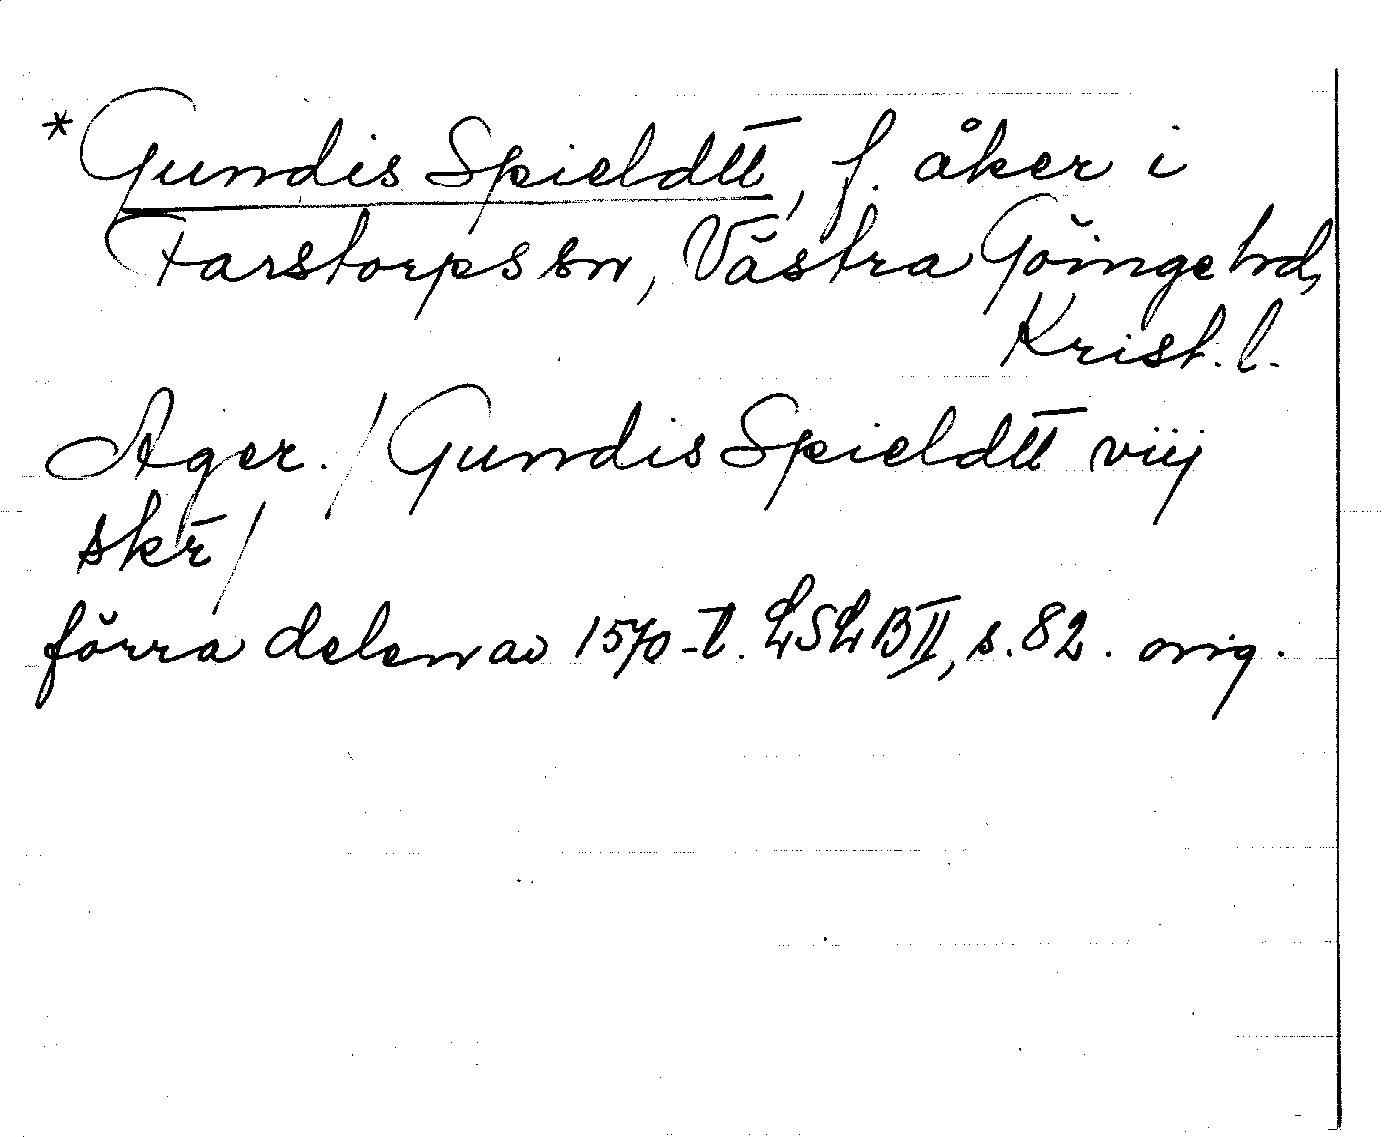 *Gundis Spieldtt̄, f. åker i
Farstorps sn, Västra Göinge hd,
Krist. l.
Ager. / Gundis Spieldtt̄ viij
skr̄ /
förra delen av 1570-t. LSLBII, s. 82. orig.